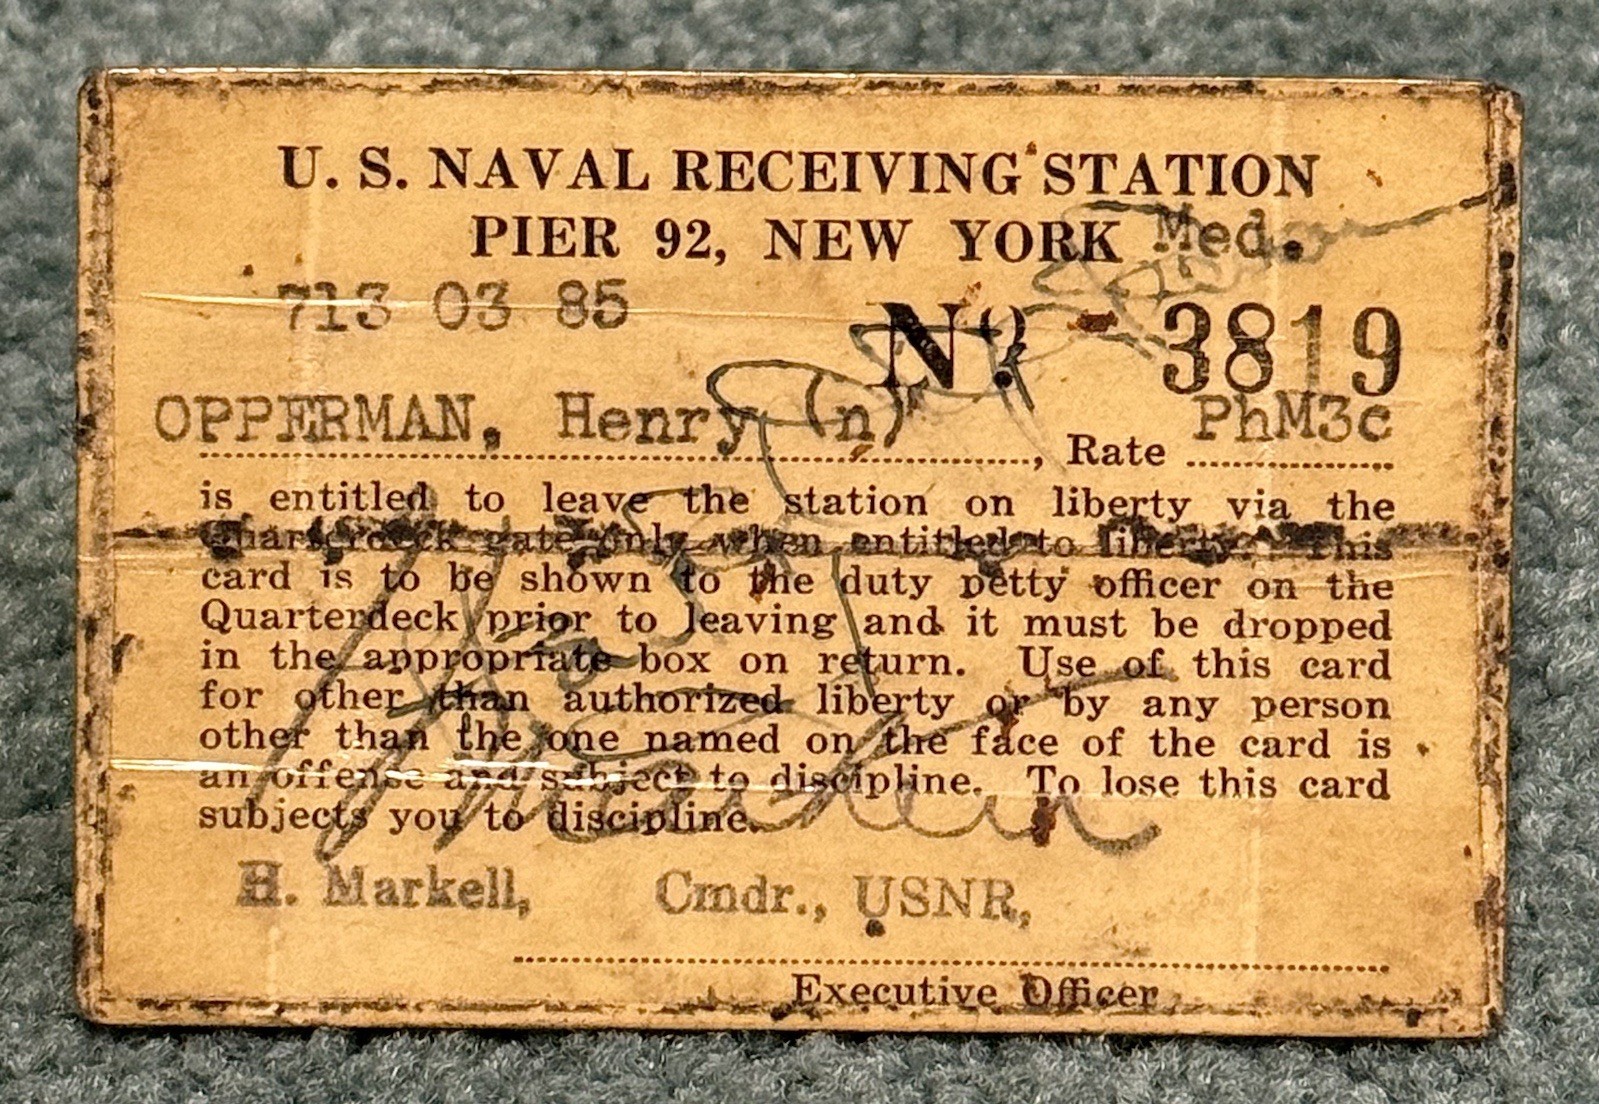 U. S. NAVAL RECEIVING STATION
PIER 92, NEW YORK Med.
713 03 85
Nº 3819
OPPERMAN, Henry (n), Rate PhM3c
is entitled to leave the station on liberty via the
Quarterdeck gate only when entitled to liberty. This
card is to be shown to the duty petty officer on the
Quarterdeck prior to leaving and it must be dropped
in the appropriate box on return. Use of this card
for other than authorized liberty or by any person
other than the one named on the face of the card is
an offense and subject to discipline. To lose this card
subjects you to discipline.
H. Markell, Cmdr., USNR,
Executive Officer